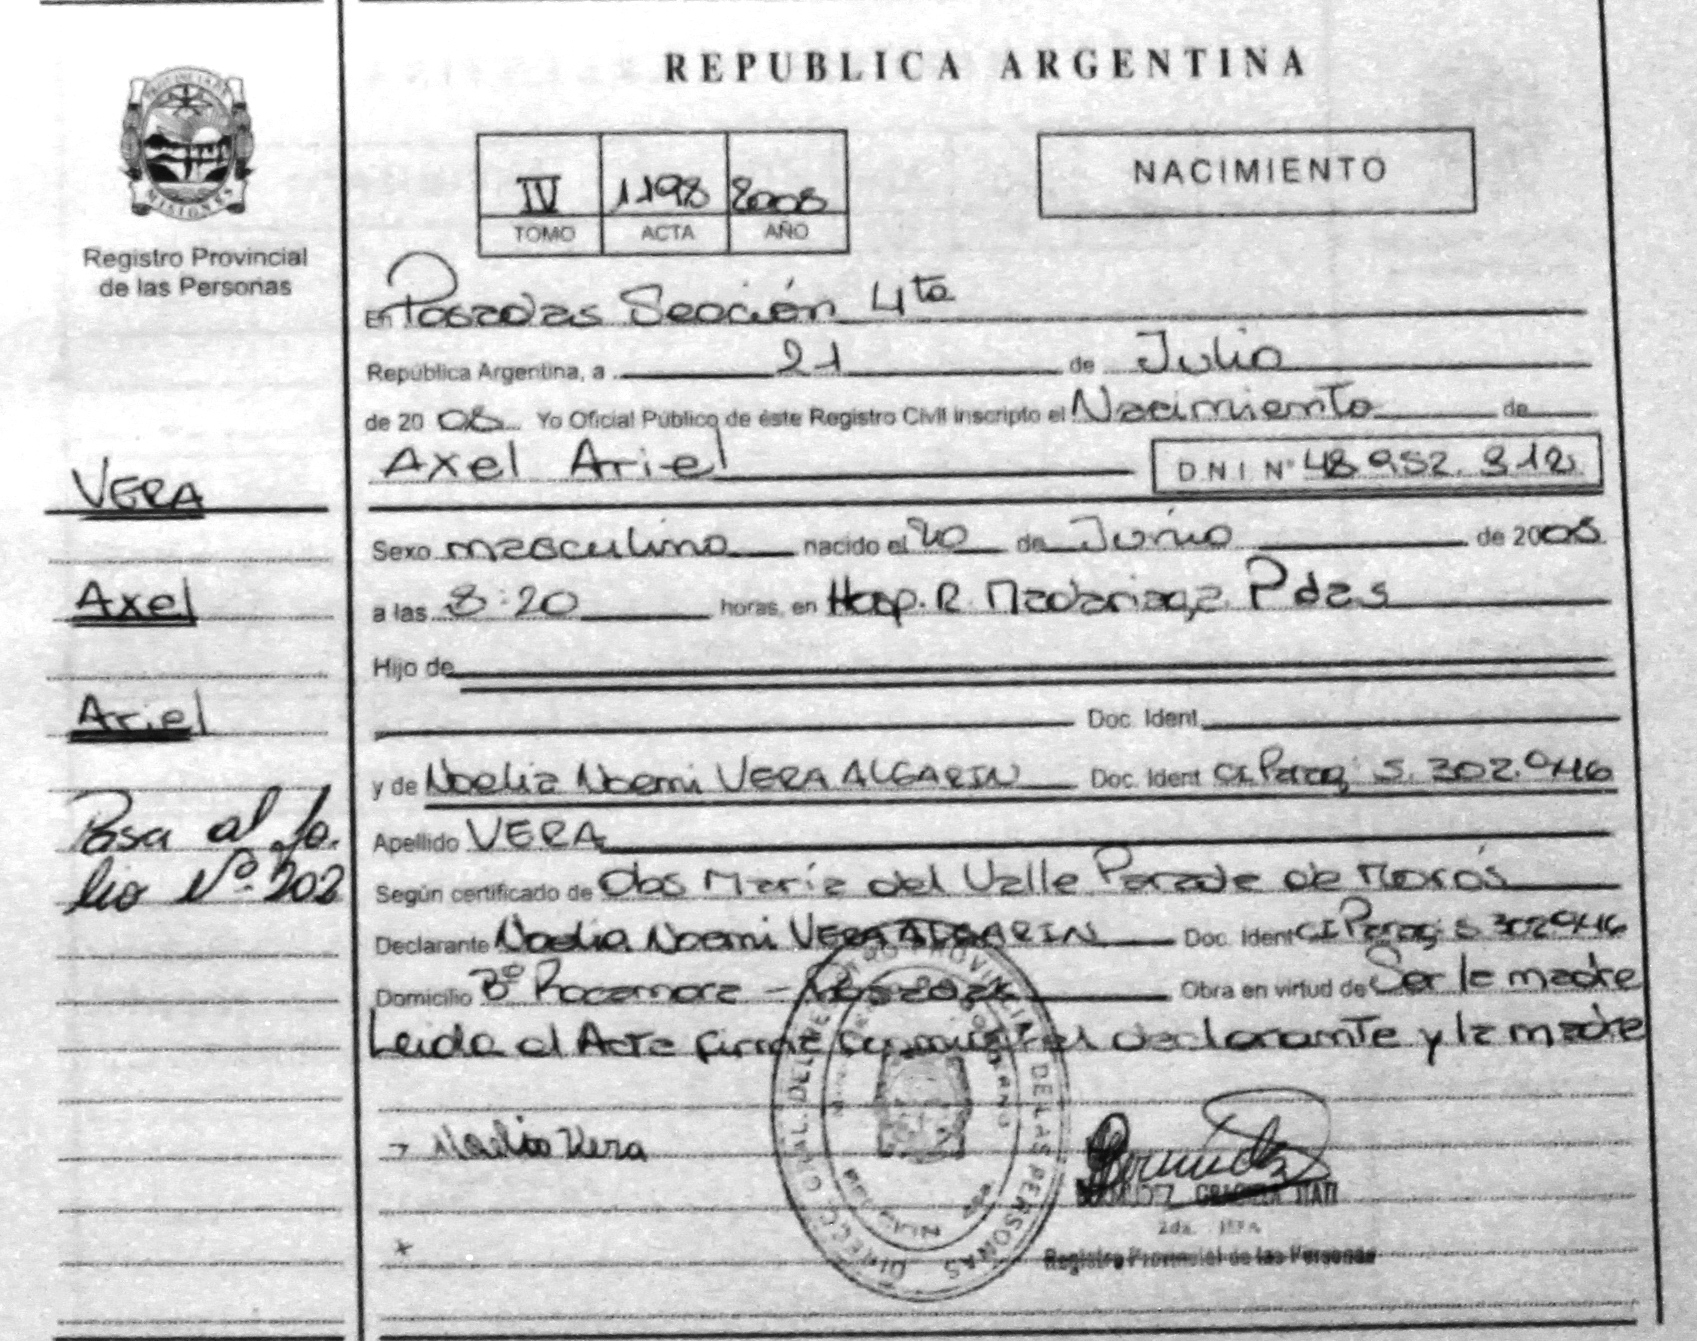 REPUBLICA ARGENTINA
MISIONES
Registro Provincial
de las Personas
IV 1198 2008
TOMO ACTA AÑO
NACIMIENTO
En Posadas Sección 4ta
República Argentina, a 21 de Julio
de 20 08 Yo Oficial Público de éste Registro Civil inscripto el Nacimiento de
Axel Ariel DNI Nº 48.952.312
VERA
Sexo masculino nacido el 20 de Junio de 2008
Axel
a las 8:20 horas, en Hosp. R. Madariaga Pdas
Hijo de
Ariel
Doc. Ident.
y de Noelia Noemi VERA ALGARIN Doc. Ident CI Parag 5.302.946
Pasa al fo-
lio Nº 202
Apellido VERA
Según certificado de Obs María del Valle Parade de
Declarante Noelia Noemi VERA ALGARIN Doc. Ident CI Parag 5.302946
Domicilio Bº Rocamora - Obra en virtud de Ser la madre
Leida el Acta firma el declarante y la madre
Noelia Vera
DIRECC. GRAL. DEL REGISTRO PROVINCIAL DE LAS PERSONAS
2da.
Registro Provincial de las Personas